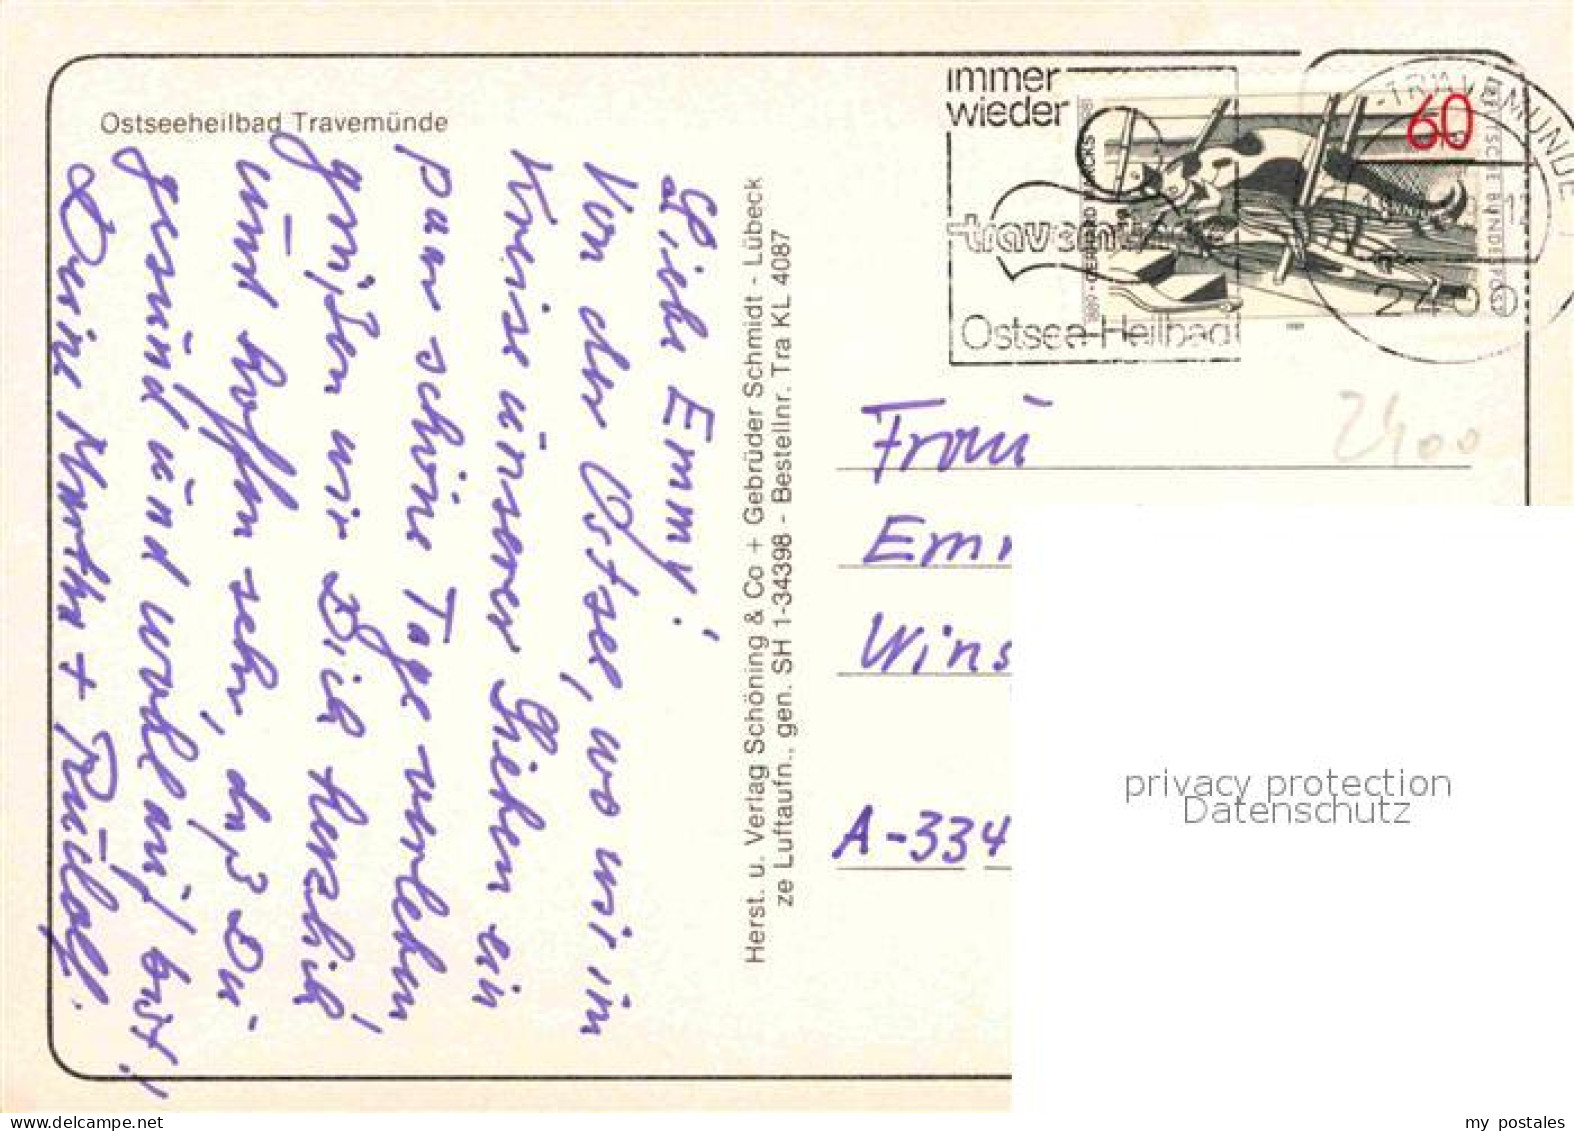 Ostseeheilbad Travemünde
Liebe Emmy!
Von der Ostsee, wo wir im
Kreise unserer Lieben ein
paar schöne Tage verleben,
grüßen wir Dich herzlich
und hoffen sehr, daß Du
gesund und wohlauf bist!
Deine Martha + Rudolf.
Herst. u. Verlag Schöning & Co + Gebrüder Schmidt - Lübeck
ze Luftaufn., gen. SH 1-34398 - Bestellnr. Tra KL 4087
immer
wieder
travemünde
Ostsee-Heilbad
TRAVEMÜNDE
2400
60
DEUTSCHE BUNDESPOST
1889 • GERHARD MARCKS
2400
Frau
Em
Wins
A-334
privacy protection
Datenschutz
my postales